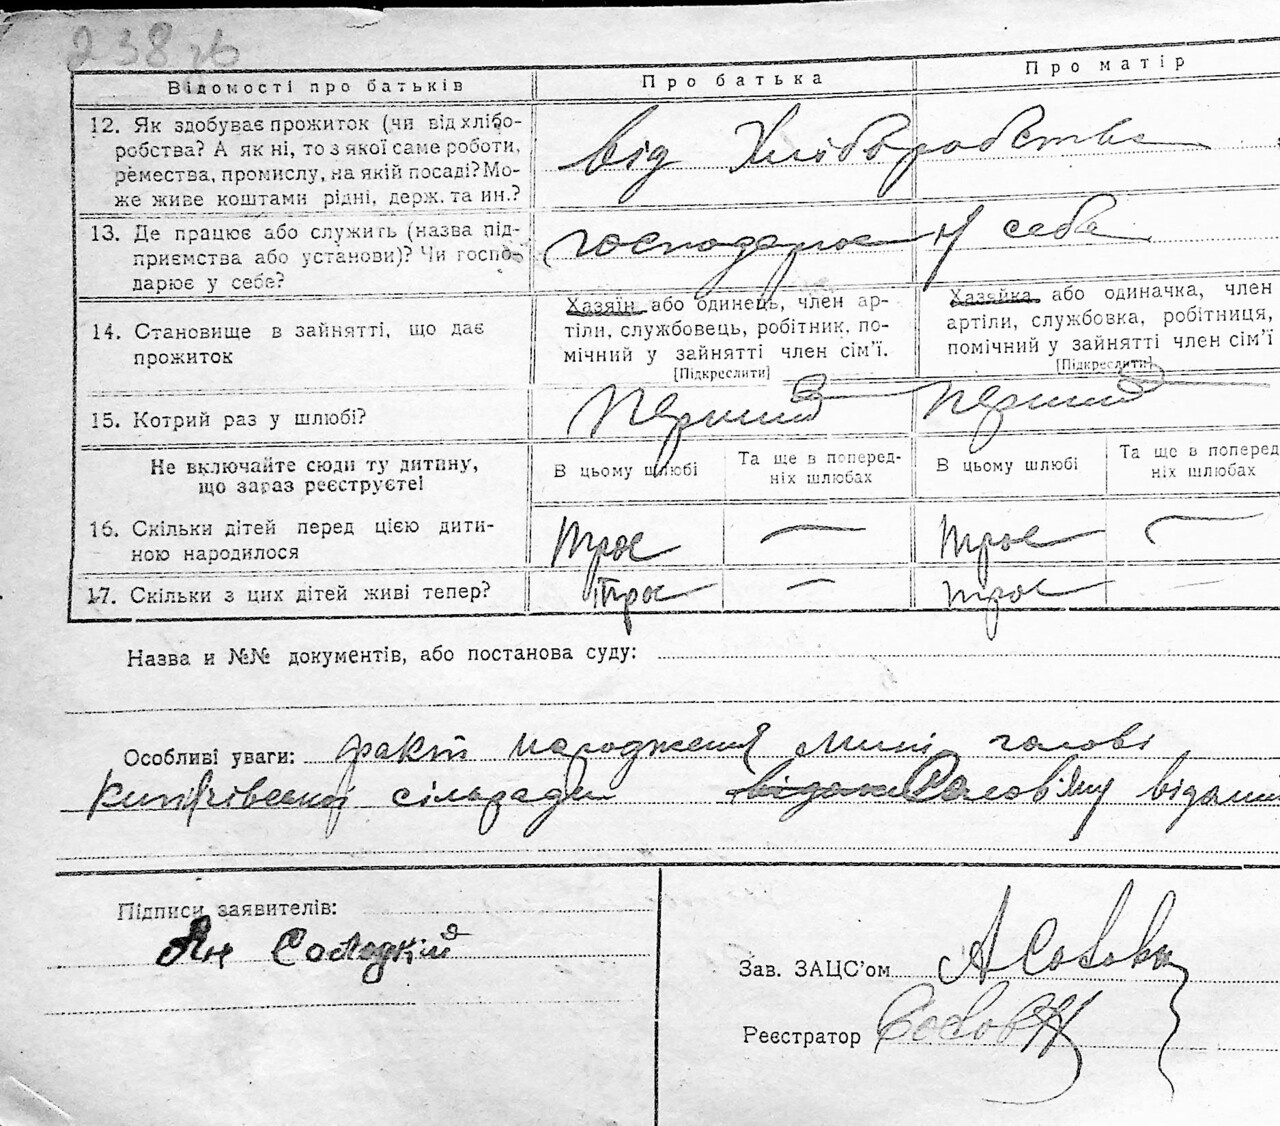 238 зв
Відомості про батьків
Про батька
Про матір
12. Як здобуває прожиток (чи від хлібо-
робства? А як ні, то з якої саме роботи,
ремества, промислу, на якій посаді? Мо-
же живе коштами рідні, держ. та ин.?
від Хліборобства
13. Де працює або служить (назва під-
приємства або установи)? Чи госпо-
дарює у себе?
господарює у себе
14. Становище в зайнятті, що дає
прожиток
Хазяїн або одинець, член ар-
тіли, службовець, робітник, по-
мічний у зайнятті член сім'ї.
[Підкреслити]
Хазяйка або одиначка, член
артіли, службовка, робітниця,
помічний у зайнятті член сім'ї
[Підкреслити]
15. Котрий раз у шлюбі?
перший
перший
Не включайте сюди ту дитину,
що зараз реєструєте!
В цьому шлюбі
Та ще в поперед-
ніх шлюбах
В цьому шлюбі
Та ще в поперед
ніх шлюбах
16. Скільки дітей перед цією дити-
ною народилося
троє
—
троє
—
17. Скільки з цих дітей живі тепер?
троє
—
троє
—
Назва и №№ документів, або постанова суду:
Особливі уваги: факт народження мині голові
сільради Солов'яну відомий
Підписи заявителів:
Ян Солодкій
Зав. ЗАЦС'ом
Реєстратор